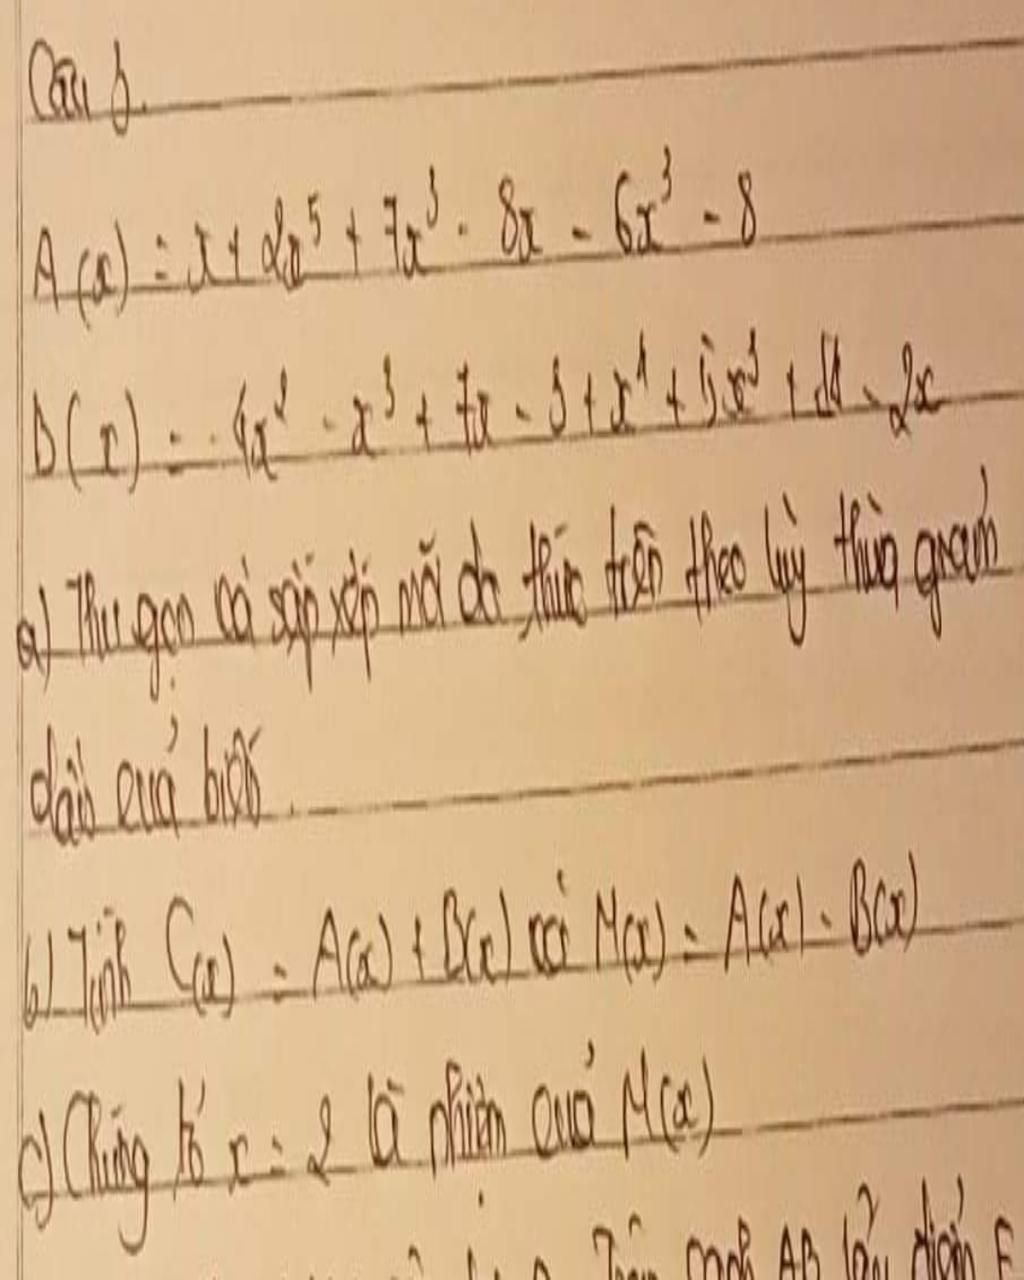 Câu 3.
A(x) = x + 2x⁵ + 7x³ - 8x - 6x³ - 8
B(x) = - 4x² - x³ + 7x - 3 + x⁴ + 5x³ + - 2x
a) Thu gọn và sắp xếp mỗi đa thức trên theo lũy thừa giảm
dần của biến.
b) Tính C(x) = A(x) + B(x) và M(x) = A(x) - B(x)
c) Chứng tỏ x = 2 là nghiệm của M(x)
AB lấy điểm E